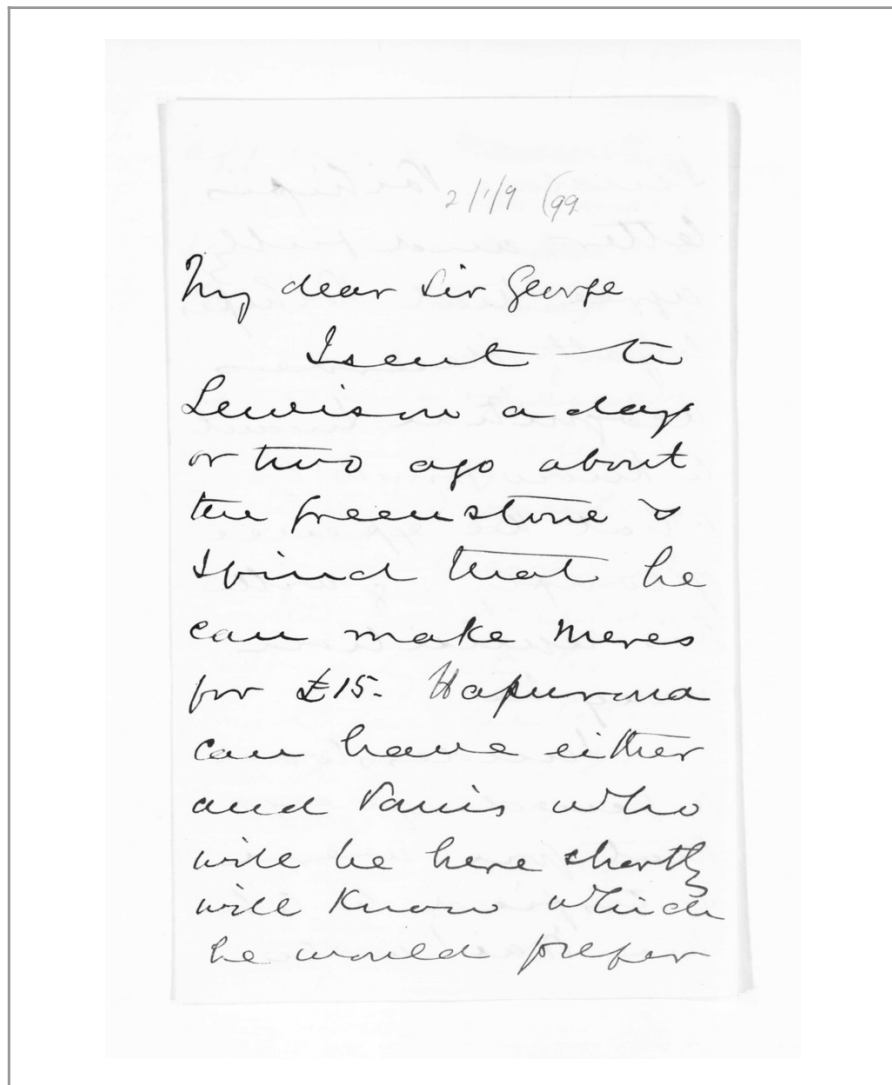 2/1/9 (99
My dear Sir George
I sent to
Lewison a day
or two ago about
the greenstone &
I find that he
can make Meres
for £15. Hapurona
can have either
and Parris who
will be here shortly
will know which
he would prefer